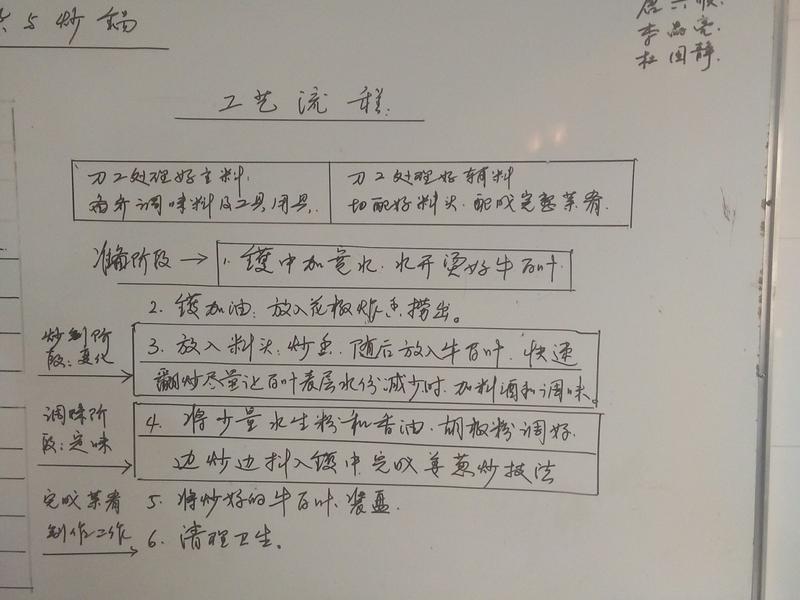 与炒锅
李品亮
杜国静
工艺流程:
刀工处理好主料.
备齐调味料及工具,用具.
刀工处理好辅料
切配好料头.配成完整菜肴.
准备阶段 → 1. 镬中加宽水.水开烫好牛百叶.
2. 镬加油.放入花椒炸香捞出。
炒制阶段:变化
3. 放入料头.炒香.随后放入牛百叶.快速
翻炒尽量让百叶表层水份减少时.加料酒和调味。
调味阶段:定味
4. 将少量水生粉和香油.胡椒粉调好.
边炒边抖入镬中完成姜葱炒技法
完成菜肴制作工作
5. 将炒好的牛百叶.装盘.
6. 清理卫生。